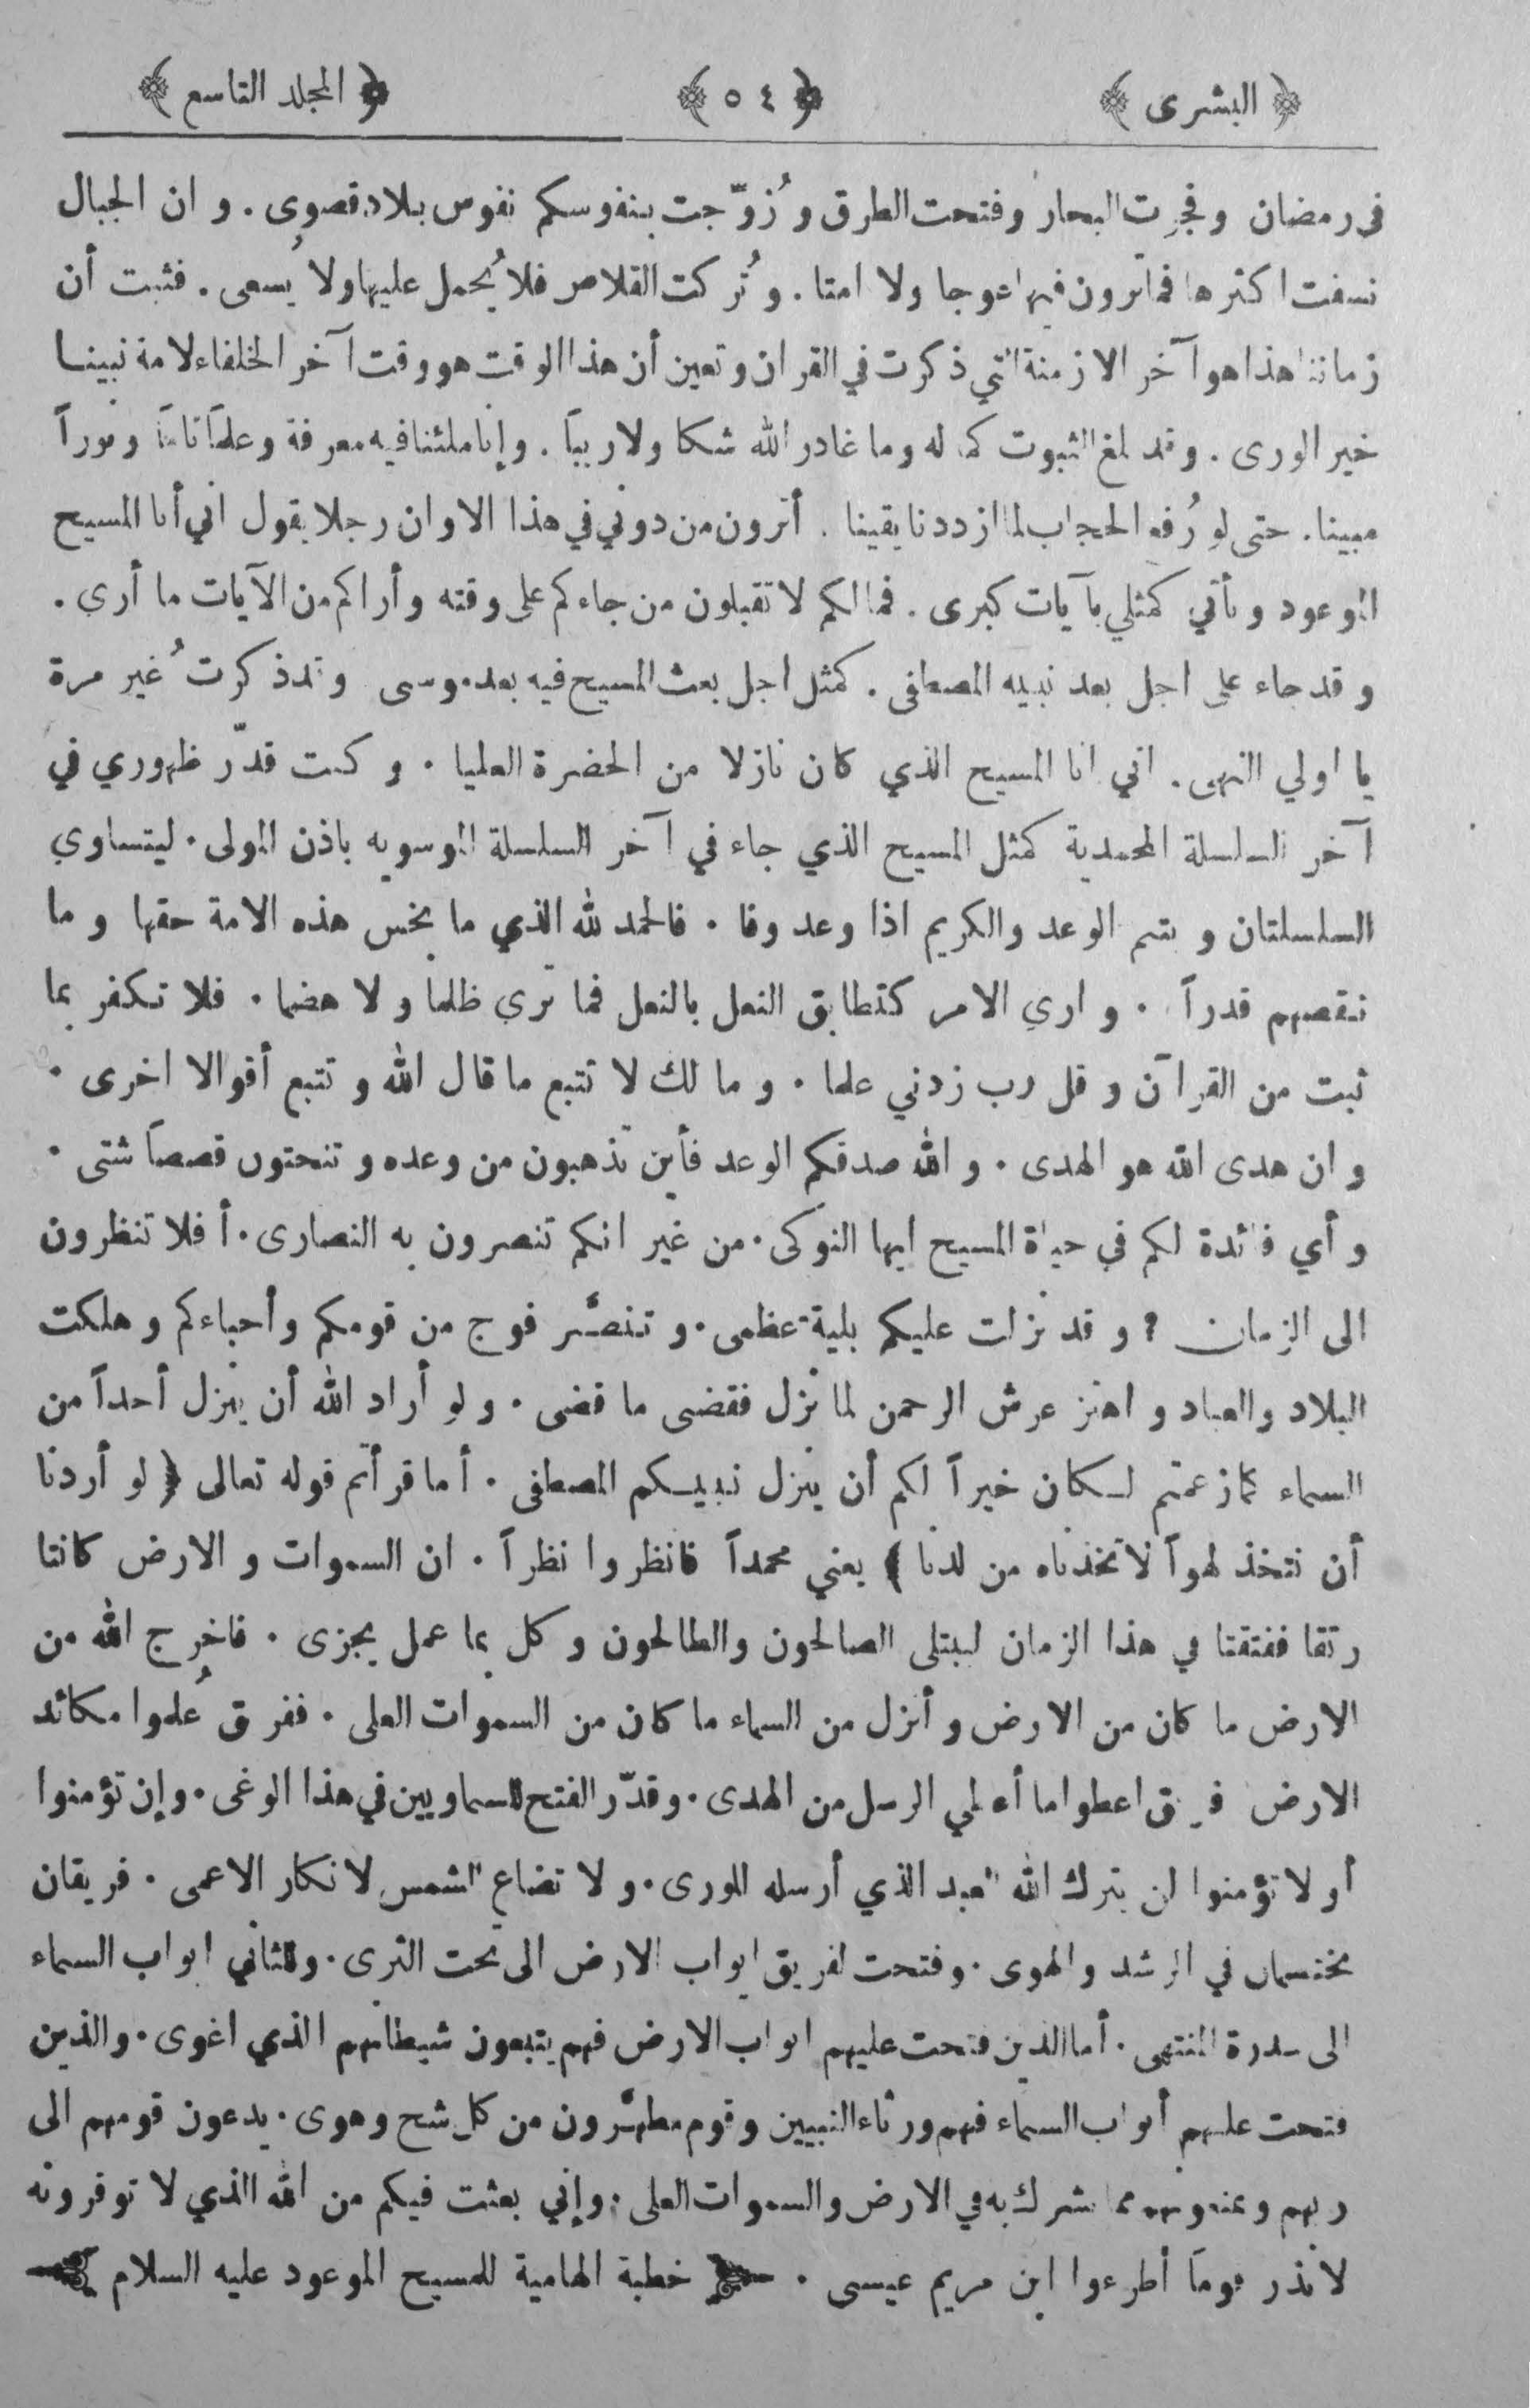 ﴿ البشرى ﴾ ﴿ ٥٤ ﴾ ﴿ المجلد التاسع ﴾
في رمضان وفجرت البحار وفتحت الطرق وزُوّجت بنفوسكم نفوس بلاد قصوى . و ان الجبال
نسفت اكثرها فما ترون فيها عوجا ولا امتا . وتُركت القلاص فلا يُحمل عليها ولا يُسعى . فثبت أن
زماننا هذا هو آخر الازمنة التي ذكرت في القران وتعين أن هذا الوقت هو وقت آخر الخلفاء لامة نبينا
خير الورى . وقد بلغ الثبوت كماله وما غادر الله شكا ولا ريباً . وإنا ملئنا فيه معرفة وعلماً تاماً ونوراً
مبينا . حتى لو رُفع الحجاب لما ازددنا يقينا . أترون من دوني في هذا الاوان رجلا يقول اني أنا المسيح
الموعود ويأتي كمثلي بآيات كبرى . فما لكم لا تقبلون من جاءكم على وقته وأراكم من الآيات ما أرى .
وقد جاء على اجل بعد نبيه المصطفى . كمثل اجل بعث المسيح فيه بعد موسى وقد ذكرتُ غير مرة
يا اولي النهى . اني انا المسيح الذي كان نازلا من الحضرة العليا . و كنت قدّر ظهوري في
آخر السلسلة المحمدية كمثل المسيح الذي جاء في آخر السلسلة الموسويه باذن المولى . ليتساوي
السلسلتان و يتم الوعد والكريم اذا وعد وفا . فالحمد لله الذي ما بخس هذه الامة حقها و ما
نقصهم قدراً . و اري الامر كتطابق النعل بالنعل فما ترى ظلما و لا هضما . فلا تكفر بما
ثبت من القرآن و قل رب زدني علما . و ما لك لا تتبع ما قال الله و تتبع أقوالا اخرى .
و ان هدى الله هو الهدى . و الله صدقكم الوعد فأين تذهبون من وعده و تنحتون قصصاً شتى .
و أي فائدة لكم في حياة المسيح ايها النوكى . من غير انكم تنصرون به النصارى . أ فلا تنظرون
الى الزمان ؟ و قد نزلت عليكم بلية عظمى . و تنصَّر فوج من قومكم وأحباءكم و هلكت
البلاد والعباد و اهتز عرش الرحمن لما نزل فقضى ما قضى . و لو أراد الله أن ينزل أحداً من
السماء كما زعمتم لكان خيراً لكم أن ينزل نبيكم المصطفى . أما قرأتم قوله تعالى ﴿ لو أردنا
أن نتخذ لهواً لاتخذناه من لدنا ﴾ يعني محمداً فانظروا نظراً . ان السموات و الارض كانتا
رتقا ففتقتا في هذا الزمان ليبتلى الصالحون والطالحون و كل بما عمل يجزى . فاخرج الله من
الارض ما كان من الارض و أنزل من السماء ما كان من السموات العلى . ففرق عُلموا مكائد
الارض فريق اعطوا ما أعطي الرسل من الهدى . وقدّر الفتح للسماويين في هذا الوغى . وإن تؤمنوا
أو لا تؤمنوا لن يترك الله العبد الذي أرسله للورى . و لا تضاع الشمس لانكار الاعمى . فريقان
يختصمان في الرشد و الهوى . وفتحت لفريق ابواب الارض الى تحت الثرى . وللثاني ابواب السماء
الى سدرة المنتهى . أما الذين فتحت عليهم ابواب الارض فهم يتبعون شيطانهم الذي اغوى . والذين
فتحت عليهم أبواب السماء فهم ورثاء النبيين وقوم مطهَّرون من كل شح وهوى . يدعون قومهم الى
ربهم و يمنعونهم مما يشرك به في الارض والسموات العلى . وإني بعثت فيكم من الله الذي لا توقرونه
لانذر قوماً أطرءوا ابن مريم عيسى . خطبة الهامية للمسيح الموعود عليه السلام